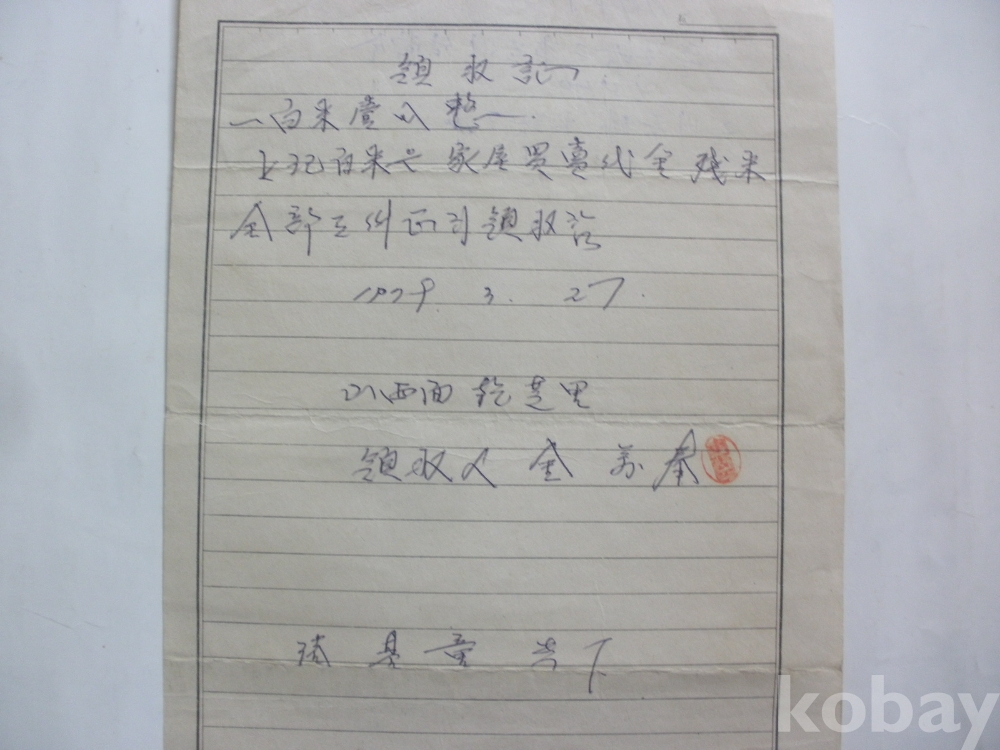 領收証
一 白米壹叺 整
上記白米는 家屋買賣代金 殘米
全部로 正히 領收함
1979. 3. 27.
西面 芝里
領収人 金 萬 奉
基 貴下
kobay